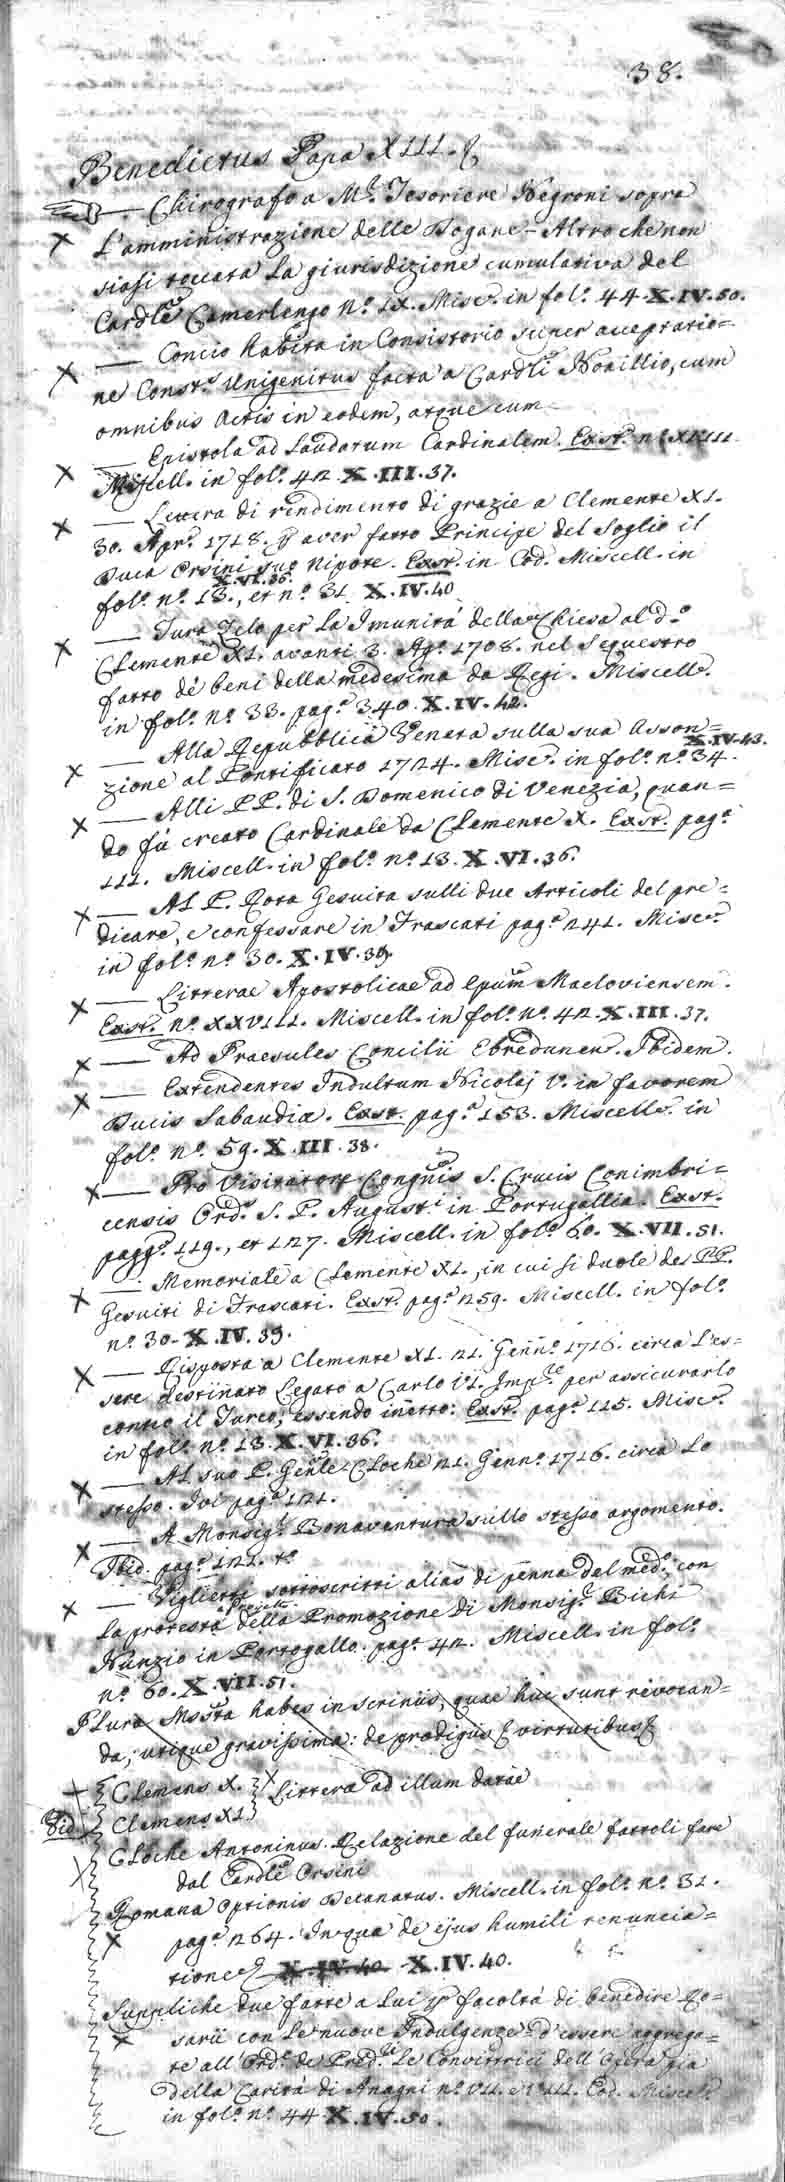 38.
Benedictus Papa XIII.
— Chirografo a M.r Tesoriere Negroni sopra
x L'amministrazione delle Dogane - Altro che non
siasi toccata la giurisdizione cumulativa del
Cardle Camerlengo N.o IX. Misc. in fol.o 44. X.IV.50.
— Concio habita in Consistorio super acceptatio=
x ne Const.s Unigenitus facta a Cardli Noaillio, cum
omnibus Actis in eodem, atque cum
— Epistola ad Laudatum Cardinalem. Exst. n.o XLIII
x Miscell. in fol.o 42. X.III.37.
— Lettera di rendimento di grazie a Clemente XI.
x 30. Apr.e 1718. p aver fatto Principe del Soglio il
Duca Orsini suo Nipote. Exst. in Cod. Miscell. in
X.VI.36.
fol.o n.o 13., et n.o 31. X.IV.40
— Sura Zelo per la Imunità della Chiesa al d.o
x Clemente XI. avanti 3. Ag.o 1708. nel Sequestro
fatto de' beni della medesima da Regi. Miscell.
in fol.o n.o 33. pag.a 340. X.IV.42.
— Alla Repubblica Veneta sulla sua Asson=
X.IV.43.
x zione al Pontificato 1724. Misc. in fol.o n.o 34.
x — Alli PP. di S. Domenico di Venezia, quan=
do fù creato Cardinale da Clemente X. Exst. pag.a
111. Miscell. in fol.o n.o 13. X.VI.36.
x — Al P. Rota Gesuita sulli due Articoli del pre=
dicare, e confessare in Frascati pag.a 241. Misc.
in fol.o n.o 30. X.IV.39.
x — Litterae Apostolicae ad Epum Macloviensem.
Exst. n.o XXVIII. Miscell. in fol.o n.o 42. X.III.37.
x — Ad Praesules Concilii Ebredunen. Ibidem.
x — Extendentes Indultum Nicolaj V. in favorem
Ducis Sabaudiæ. Exst. pag.a 153. Miscell. in
fol.o n.o 59. X.III.38.
x — Pro Visitatore Congnis S. Crucis Conimbri=
censis Ord.s S. P. August.i in Portugallia. Exst.
pagg.e 119., et 127. Miscell. in fol.o 60. X.VII.51.
— Memoriale a Clemente XI., in cui si duole de' PP.
x Gesuiti di Frascati. Exst. pag.a 259. Miscell. in fol.o
n.o 30. X.IV.39.
x — Risposta a Clemente XI. 21. Genn.o 1716. circa l'es=
sere destinato Legato a Carlo VI. Imp.re per assicurarlo
contro il Turco, essendo inetto: Exst. pag.a 115. Misc.
in fol.o n.o 13. X.VI.36.
x — Al suo P. Gen̅le Cloche 21. Genn.o 1716. circa lo
stesso. Ivi pag.a 121.
x — A Monsig.r Bonaventura sullo stesso argomento.
Ibid. pag.a 121. t.o
x — Viglietti sottoscritti alias di penna del med.o, con
la protesta della Promozione di Monsig.r Bichi
Nunzio in Portogallo. pag.a 42. Miscell. in fol.o
n.o 60. X.VII.51.
Plura Msta habes in scriniis, quae huc sunt revocan=
da; utique gravissima: de prodigiis & virtutibus &
Clemens X. } x Litteræ ad illum datae
Vid. Clemens XI }
Cloche Antoninus. Relazione del funerale fattoli fare
dal Cardle Orsini
Romana Optionis Decanatus. Miscell. in fol.o n.o 31.
x pag.a 264. In qua de ejus humili renuncia=
tione & X.IV.40 X.IV.40.
Suppliche due fatte a Lui p facoltà di benedire Ro=
x sarii con le nuove Indulgenze e d'essere aggrega=
te all' Ord.e de Pred.ri Le Convittrici dell' Opera pia
della Carità di Anagni n.o VII. e VIII. Cod. Miscel.
in fol.o n.o 44. X.IV.50.